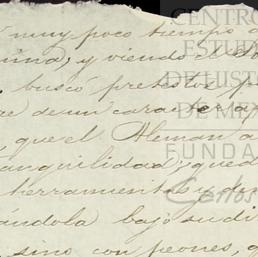 muy poco tiempo
mina; y viendo el
buscó pretestos p
de un caracter a
que el Aleman a
anquilidad; qued
herramientas y di
ándola bajo su di
sino con peones, q
CENTRO
ESTUD
DE HISTO
DE MÉX
FUNDA
Carlos